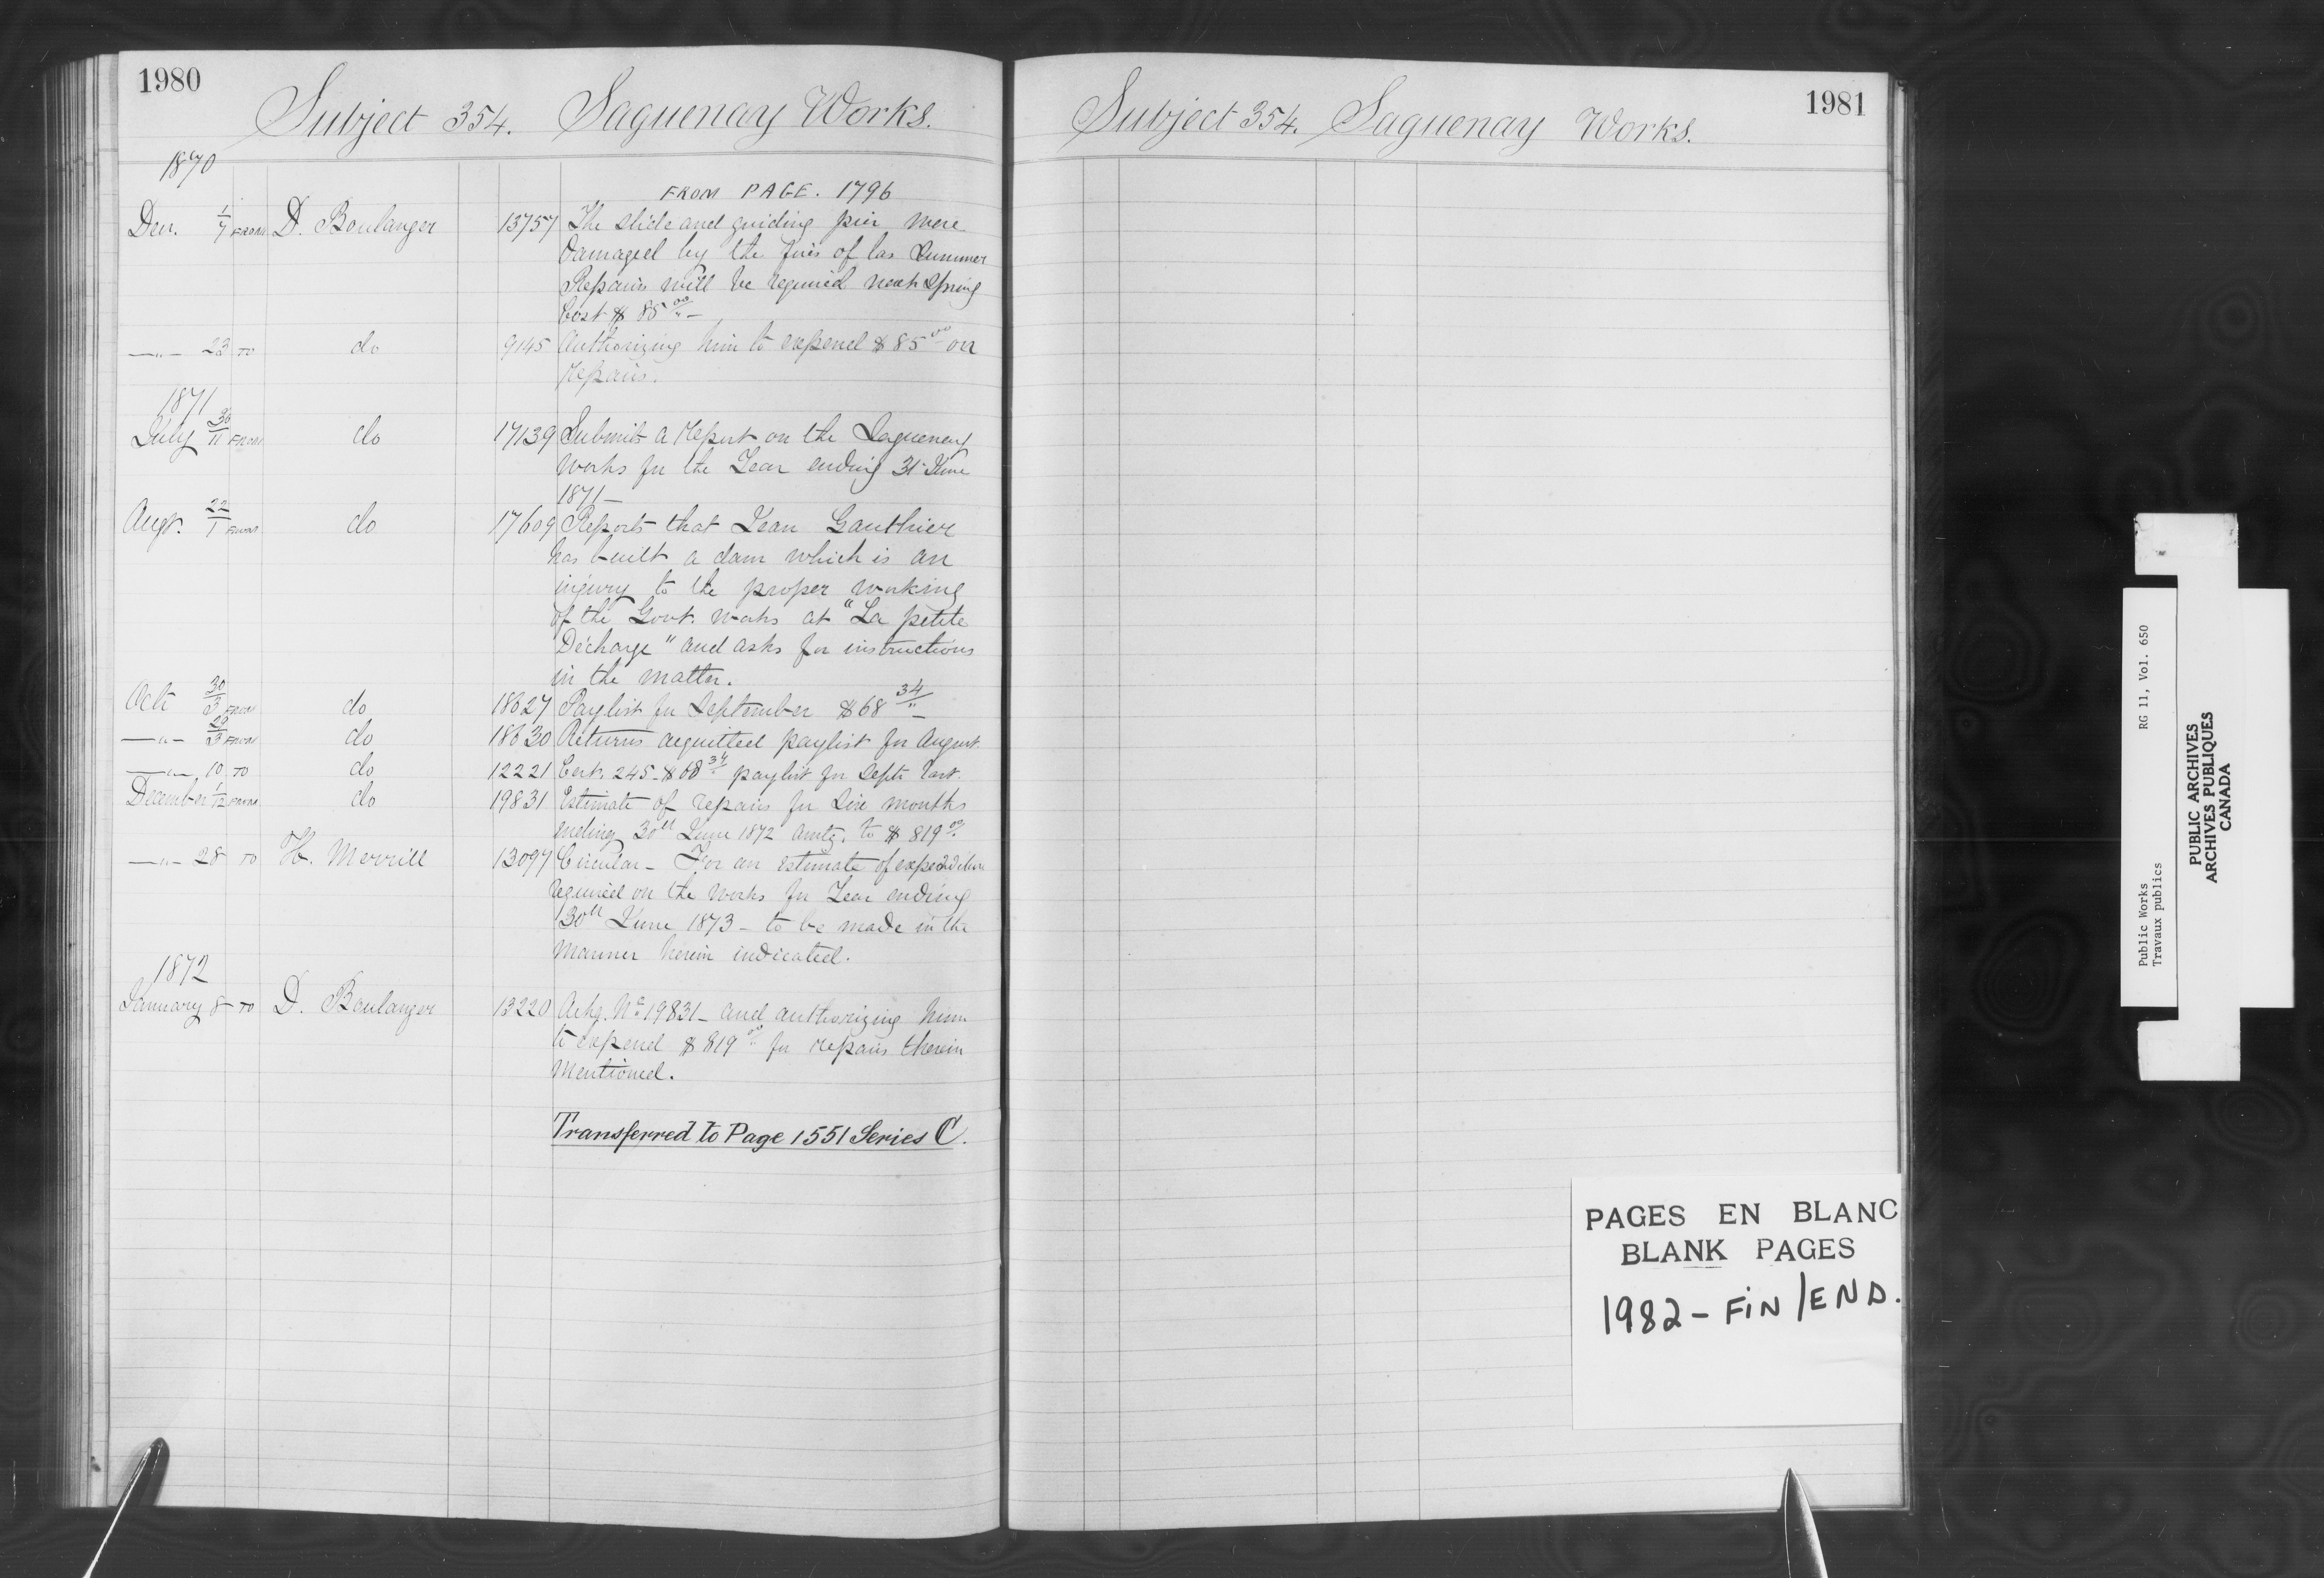 1980
Subject 354. Saguenay Works.
1870
FROM PAGE. 1796
Decr. 1/7 FROM D. Boulanger 13757 The slide and guiding pier were
damaged by the fires of las Summer
Repairs will be required next Spring
Cost $85 00/" —
—"— 23 TO do 9145 Authorizing him to expend $85 00 on
repairs.
1871
July 30/11 FROM do 17139 Submits a report on the Saguenay
works for the Year ending 31 June
1871—
Augt. 22/1 FROM do 17609 Reports that Jean Gauthier
has built a dam which is an
injury to the proper working
of the Govt. works at "La petite
Décharge" and asks for instructions
in the matter.
Oct 30/3 FROM do 18627 Paylist for September $68 34/" —
—"— 20/3 FROM do 18630 Returns acquitted paylist for August.
—"— 10 TO do 12221 Cert. 245 - $68 34 paylist for Septr last.
December 1/12 FROM do 19831 Estimate of repairs for Six months
ending 30th June 1872 amtg. to $819 00.
—"— 28 TO H. Merrill 13097 Circular — For an estimate of expenditure
required on the works for Year ending
30th June 1873 — to be made in the
manner herein indicated.
1872
January 8 TO D. Boulanger 13220 Ackg. No 19831 — and authorizing him
to expend $819 00 for repairs therein
mentioned.
Transferred to Page 1551 Series C.
1981
Subject 354. Saguenay Works.
PAGES EN BLANC
BLANK PAGES
1982 - FIN / END.
Public Works RG 11, Vol. 650
Travaux publics
PUBLIC ARCHIVES
ARCHIVES PUBLIQUES
CANADA